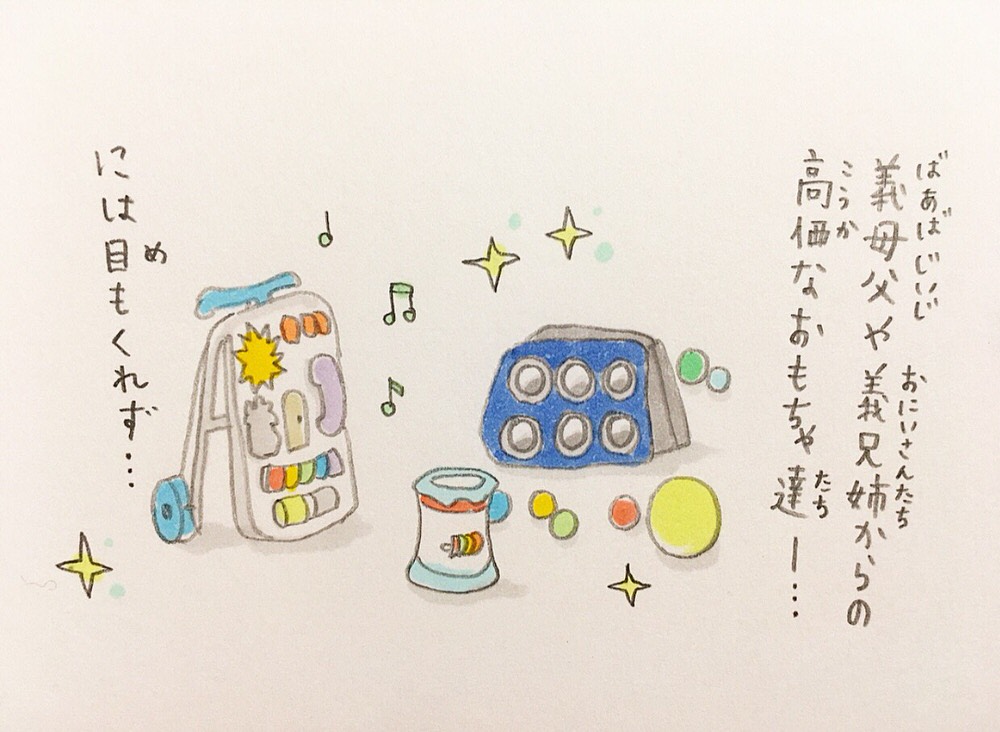 ばあばじいじ
義母父や義兄姉からの
おにいさんたち
高価なおもちゃ達ー…
こうか
たち
には目もくれず…
め